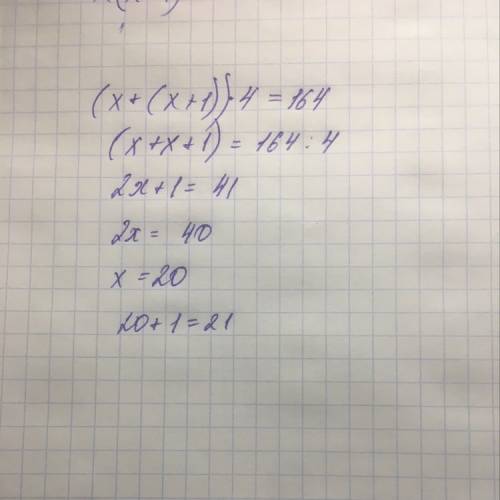 (x+(x+1))·4=164
(x+x+1)=164:4
2x+1=41
2x=40
x=20
20+1=21